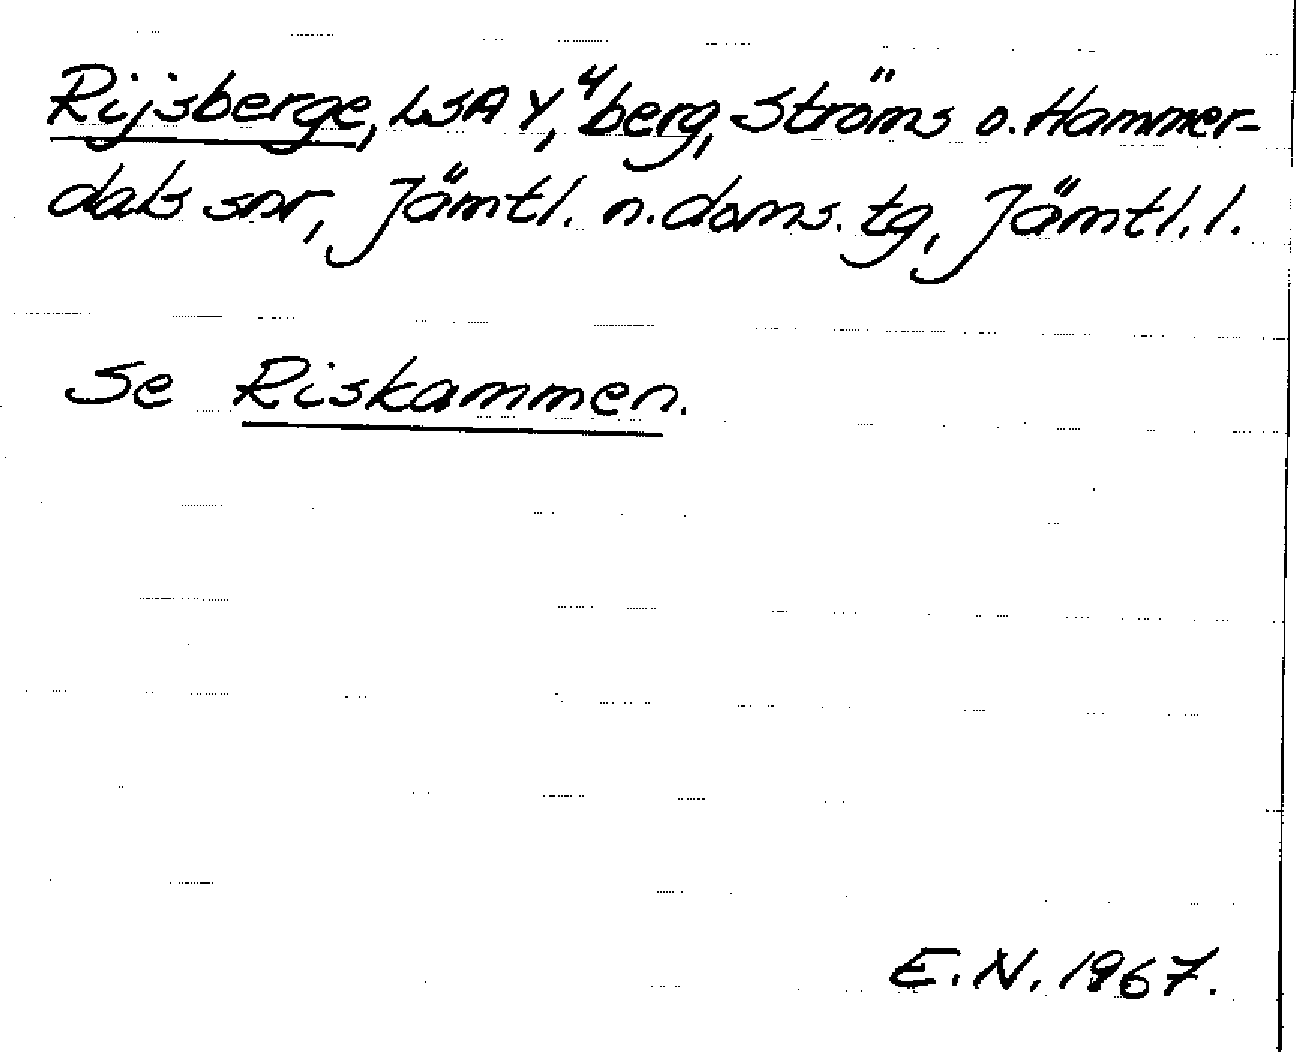 Rijsberge, LSA Y,⁴ berg, Ströms o. Hammer-
dals snr, Jämtl. n. doms. tg, Jämtl. l.
Se Riskammen.
E.N. 1967.